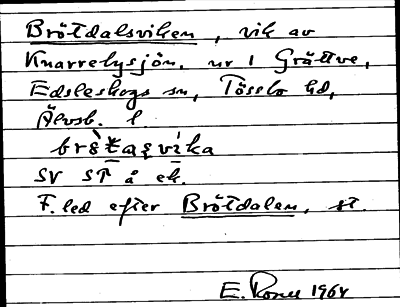 Brötdalsviken, vik av
Knarrebysjön, nr 1 Grättve,
Edsleskogs sn, Tössbo hd,
Älvsb. l.
SV ST å ek.
F. led efter Brötdalen, st.
E. 1964